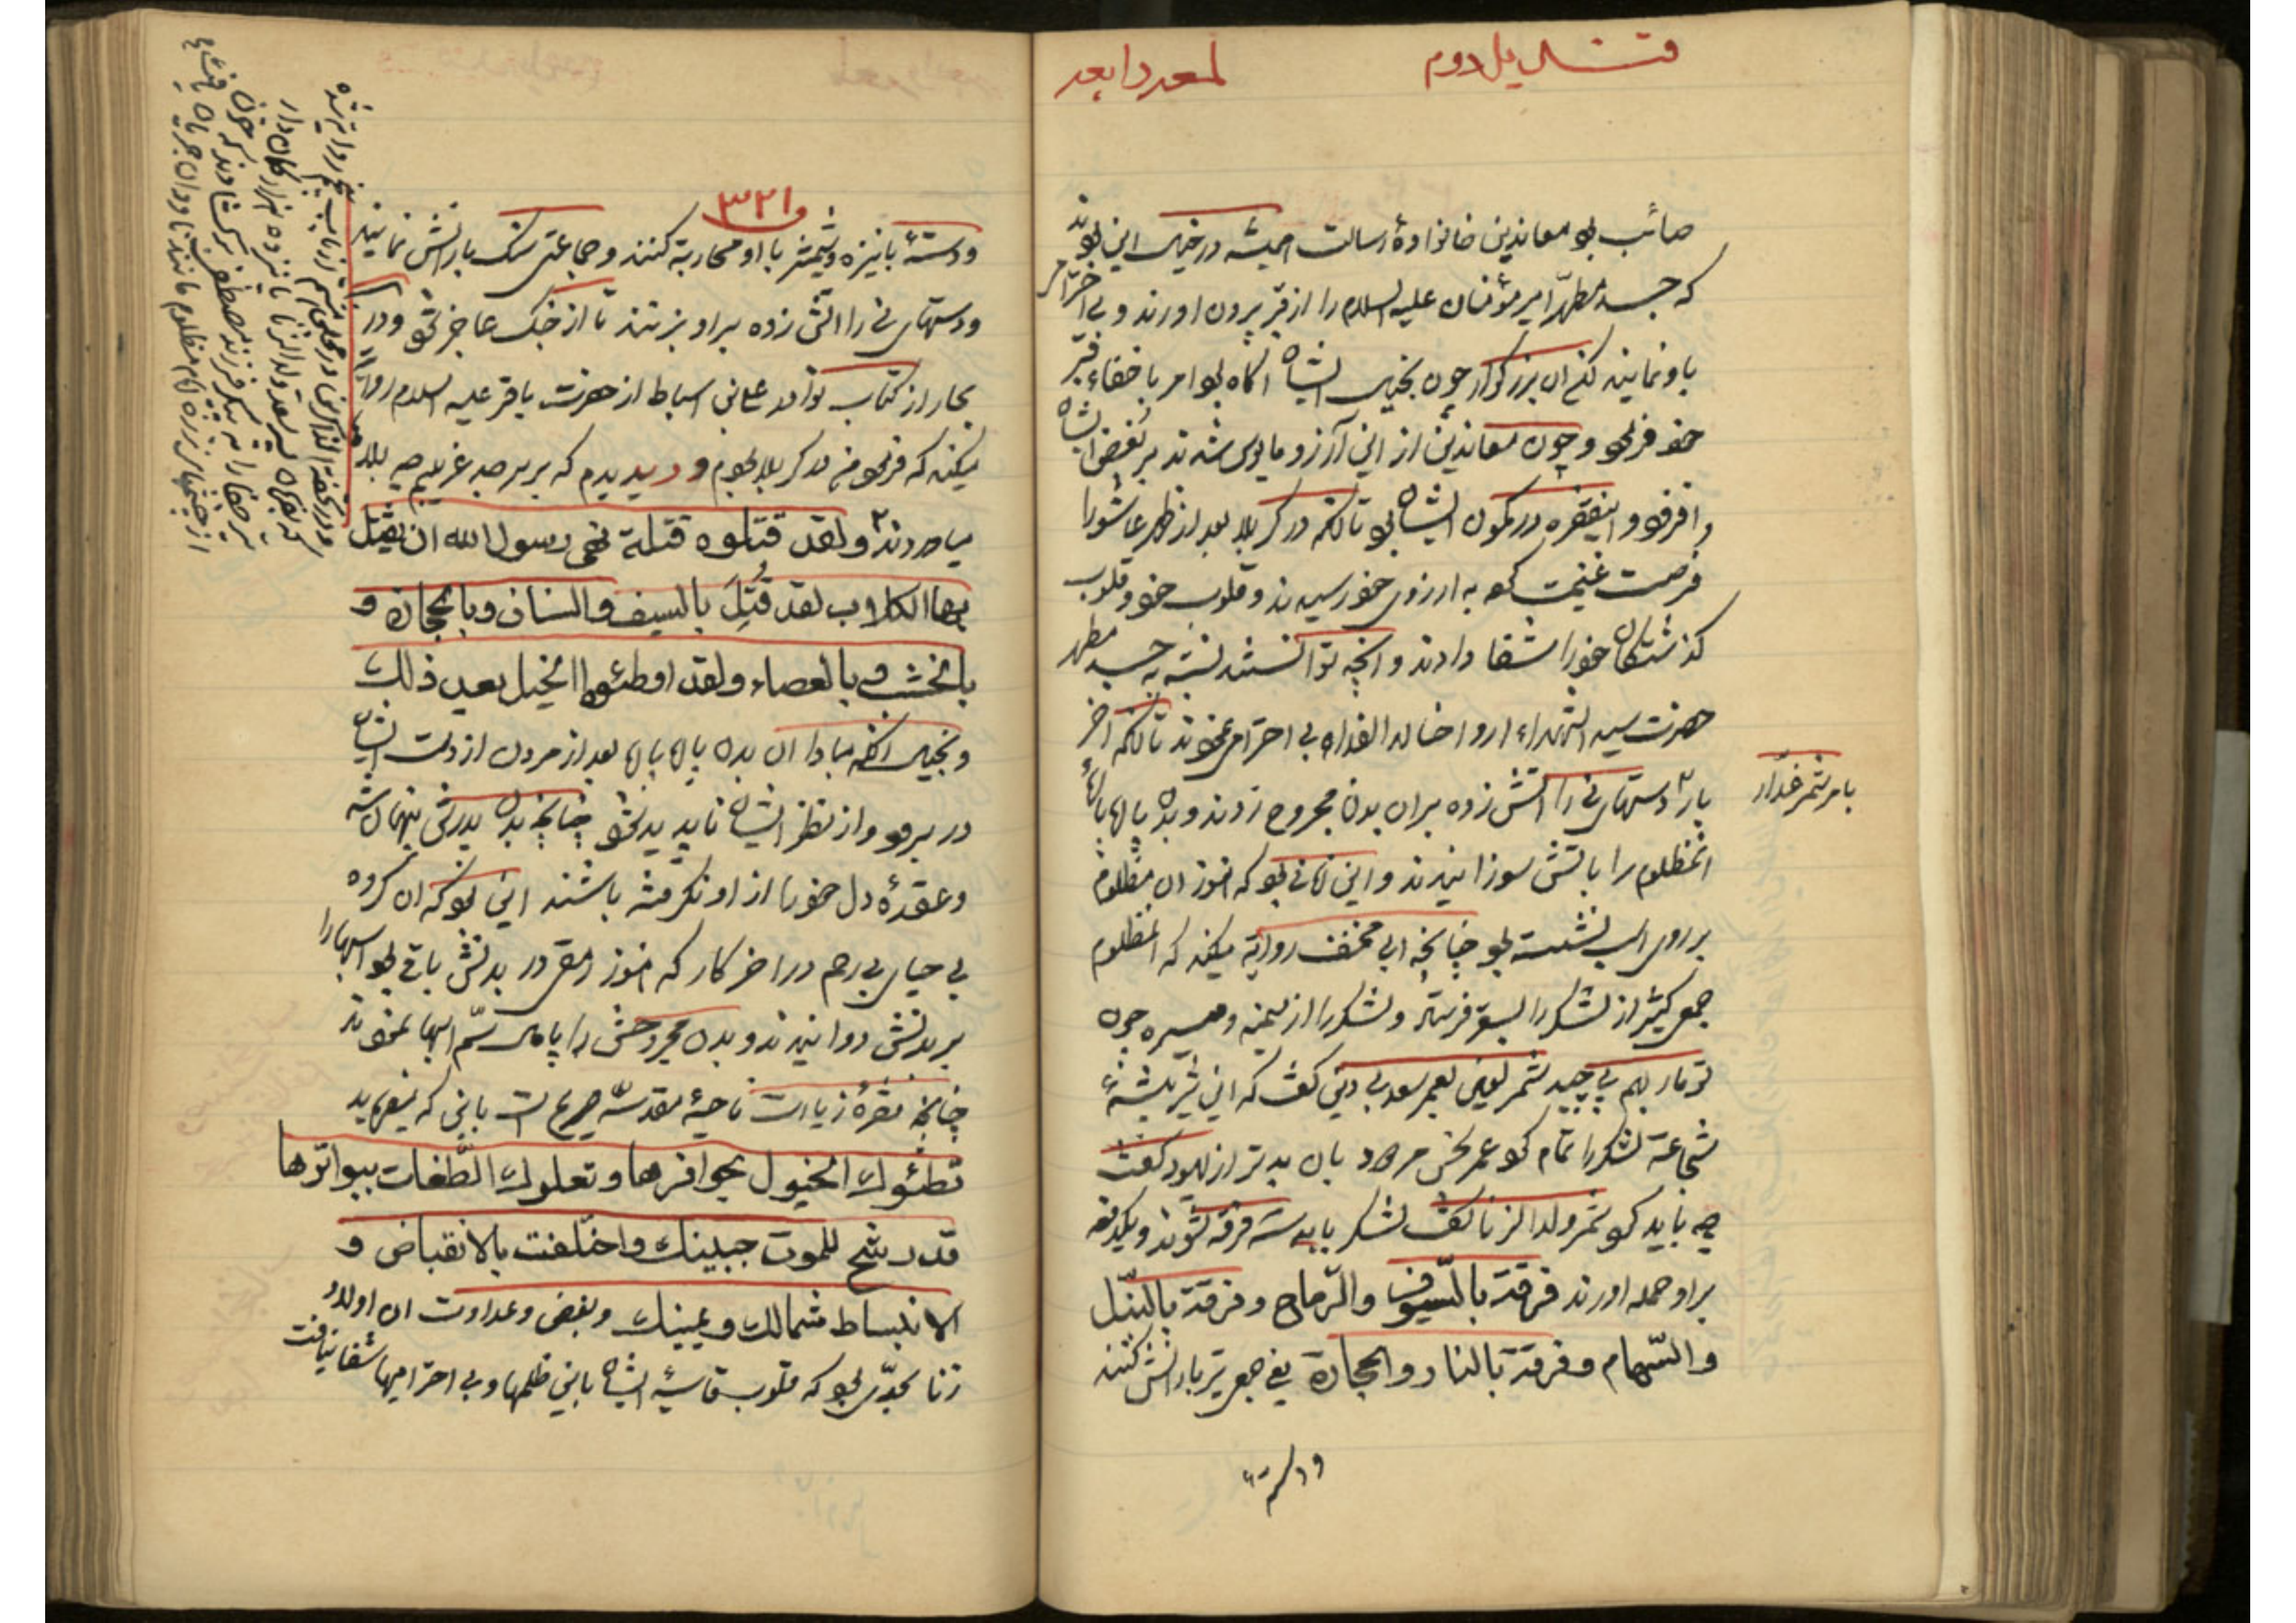 قندیل دوم
لمعه رابعه
صائب بود معاندین خانوادهٔ رسالت همیشه در خیال این بودند
که جسد مطهّر امیر مؤمنان علیه السلام را از قبر بیرون اورند و بی احترامی
باو نمایند لکن ان بزرکوار چون بخیال ایشان اکاه بود امر باخفاء قبر
خود فرمود و چون معاندین از این آرزو مایوس شدند بر بغض ایشان
افزود و اینفقره در کمون ایشان بود تا انکه در کربلا بعد از ظهر عاشورا
فرصت غنیمت کرده به ارزوی خود رسیدند و قلوب خود و قلوب
کذشتکان خود را شفا دادند و انچه توانستند نسبت به جسد مطهر
حضرت سید الشهداء ارواحنا له الفداء بی احترامی نمودند تا انکه اخر
بار دستهای نی را اتش زده بر ان بدن مجروح زدند و بدن پاره پارهٔ
بامر شمر غدّار
انمظلوم را باتش سوزانیدند و این زمانی بود که هنوز ان مظلوم
بر روی اسب نشسته بود چنانچه ابی مخنف روایة میکند که انمظلوم
جمعی کثیر از لشکر را بسقر فرستاد و لشکر را از میمنه و میسره چون
تومار بهم پیچید شمر لعین بعمر سعد بی دین کفت که این شیر بیشهٔ
شجاعة لشکر را تمام کرد عمر نحس مردود بان بدتر از یهود کفت
چه باید کرد شمر ولد الزنا کفت لشکر باید سه فرقه شوند و یکدفعه
بر او حمله اورند فرقة بالسّیوف والرّماح و فرقة بالنّبل
والسّهام و فرقة بالنار والحجارة یعنی جمعی تیر بارانش کنند
و دسته
٣٢١
و دستهٔ با نیزه و شمشیر با او محاربة کنند و جماعتی سنک بارانش نمایند
و دستهای نی را اتش زده بر او بزنند تا از جنک عاجز شود و در
بحار از کتاب نوادر علی بن اسباط از حضرت باقر علیه السلام روایة
میکند که فرمود پدرم در کربلا بود و دید پدرم که بر سر جد غریبم چه بلا
میاوردند و لقد قتلوه قتلة نهی رسول الله ان یقتل
بها الکلاب لقد قُتِلَ بالسیف والسنان وبالحجارة و
بالخشب و بالعصاء ولقد اوطئوه الخیل بعد ذلك
و بخیال انکه مبادا ان بدن پاره پاره بعد از مردن از دست ایشان
در برود و از نظر ایشان ناپدید شود چنانچه بدن پدرش پنهان شد
و عقدهٔ دل خود را از او نکرفته باشند این بود که ان کروه
بی حیای بی رحم در اخر کار که هنوز رمقی در بدنش باقی بود اسبها را
بر بدنش دوانیدند و بدن مجروحش را پامال سمّ اسبها نمودند
چنانچه فقرهٔ زیارت ناحیهٔ مقدسّه صریح است باین که میفرماید
تطئوك الخیول بحوافرها و تعلوك الطّغات ببواترها
قد رشح للموت جبینك واختلفت بالانقباض و
الانبساط شمالك ویمینك و بغض و عداوت ان اولاد
زنا بحدّی بود که قلوب قاسیهٔ ایشان باین ظلمها و بی احترامیها شفا نیافت